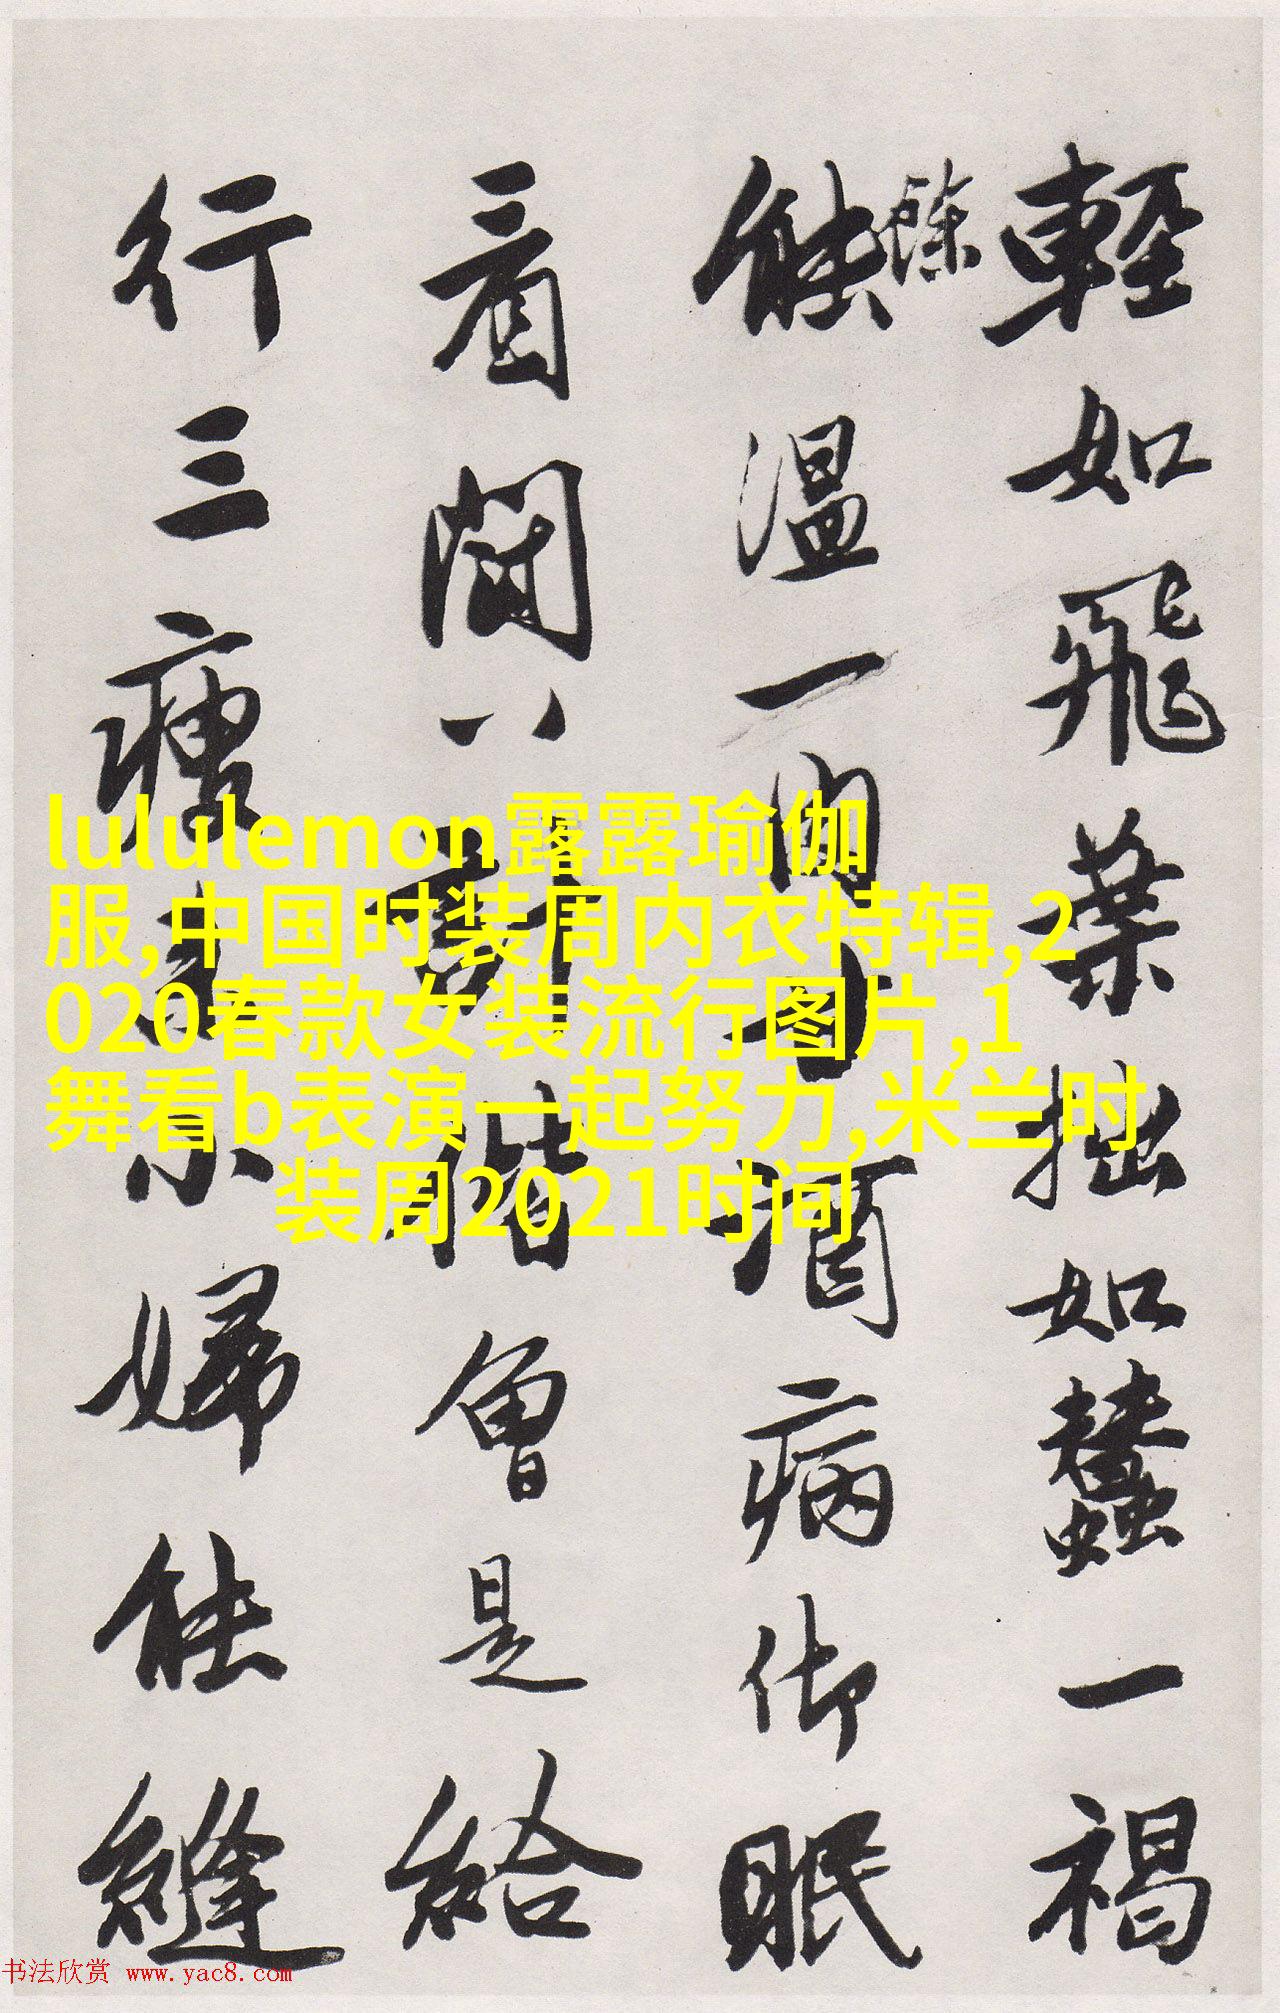 輕如飛葉拙如蠶一褐
餘
能溫一酒病御眠
看計偕曾是給
行三瘦小婦能縫
lululemon露露瑜伽
服,中国时装周内衣特辑,2
020春款女装流行图片,1
舞看b表演一起努力,米兰时
装周2021时间
书法欣赏 www.yac8.com